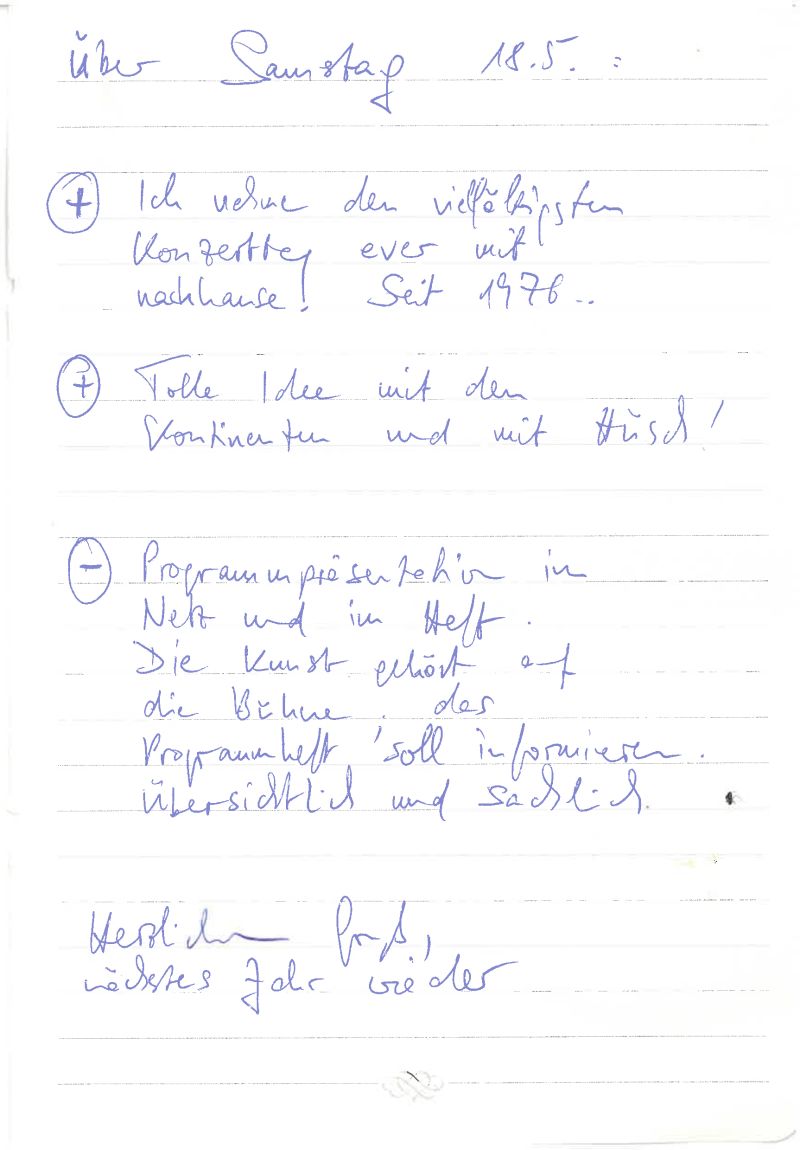 Über Samstag 18.5. :
⊕ Ich nehme den vielfältigsten
Konzerttag ever mit
nachhause! Seit 1976..
⊕ Tolle Idee mit den
Kontinenten und mit Hüsch!
⊖ Programmpräsentation in
Netz und im Heft.
Die Kunst gehört auf
die Bühne. das
Programmheft soll informieren.
Übersichtlich und sachlich.
Herzlichen Gruß,
nächstes Jahr wieder